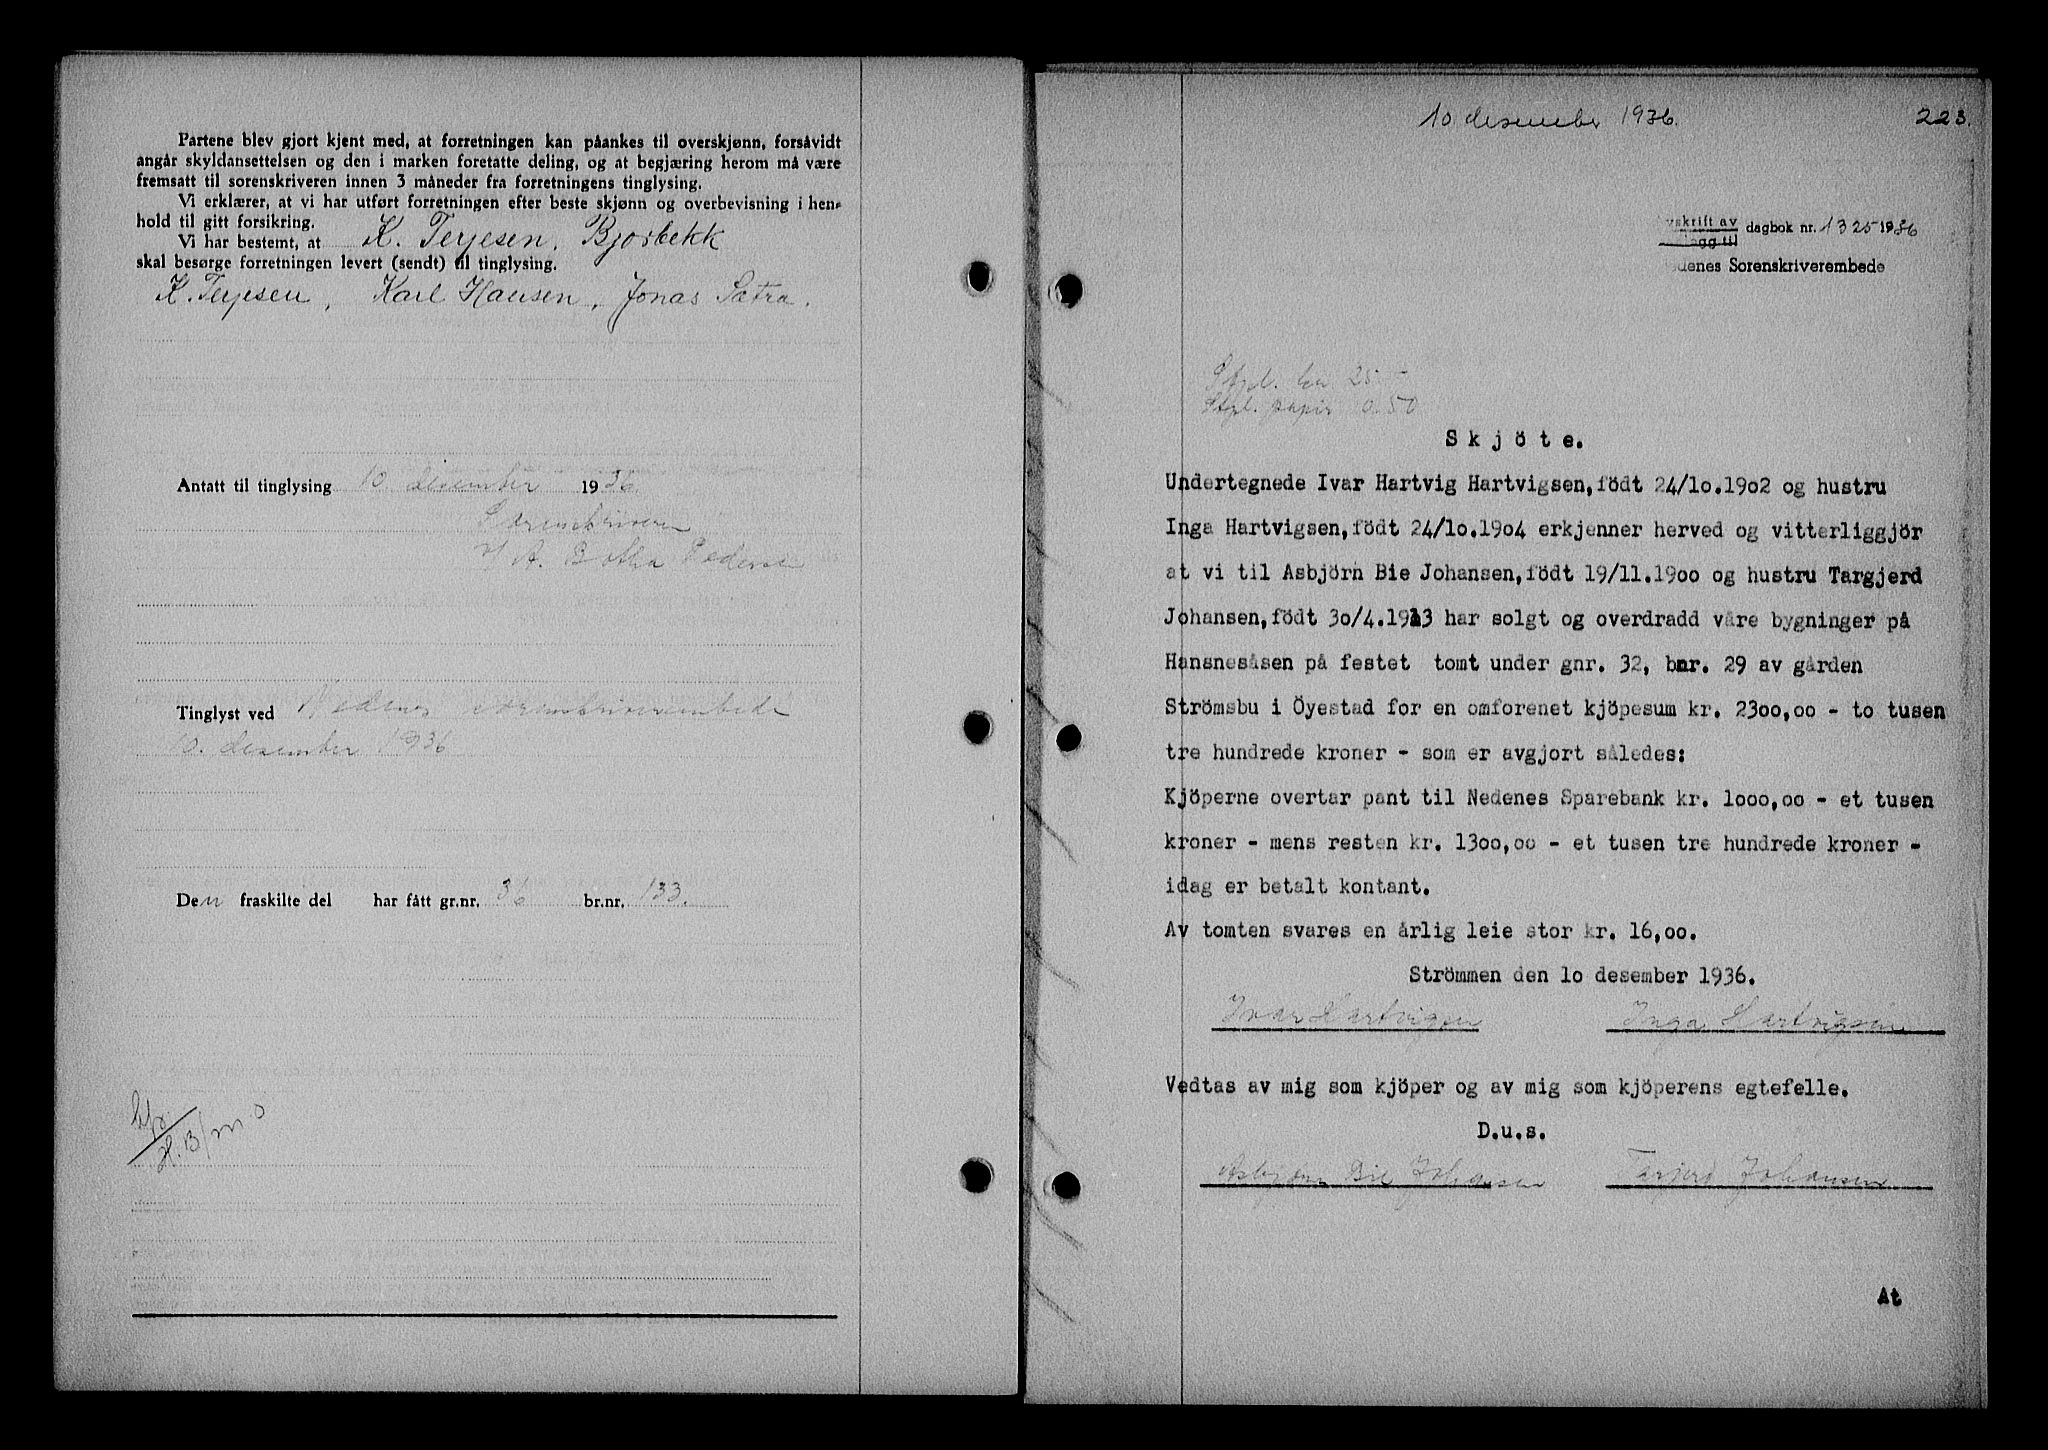 Partene blev gjort kjent med, at forretningen kan påankes til overskjønn, forsåvidt
angår skyldansettelsen og den i marken foretatte deling, og at begjæring herom må være
fremsatt til sorenskriveren innen 3 måneder fra forretningens tinglysing.
Vi erklærer, at vi har utført forretningen efter beste skjønn og overbevisning i hen-
hold til gitt forsikring.
Vi har bestemt, at K. Terjesen, Bjorbekk
skal besørge forretningen levert (sendt) til tinglysing.
K. Terjesen, Karl Hansen, Jonas Sætra.
Antatt til tinglysing 10 desember 1936
Sorenskriveren
v/ A. Botha Pederse
Tinglyst ved Nedenes sorenskriverembede
10. desember 1936
Den fraskilte del har fått gr.nr. 36 br.nr. 133.
10 desember 1936.
223.
vskrift av
dagbok nr. 1325 1936
lagg til
denes Sorenskriverembede
Stpl. kr. 25.-
Stpl. papir 0.50
Skjöte.
Undertegnede Ivar Hartvig Hartvigsen, födt 24/10.1902 og hustru
Inga Hartvigsen, födt 24/10.1904 erkjenner herved og vitterliggjör
at vi til Asbjörn Bie Johansen, födt 19/11.1900 og hustru Targjerd
Johansen, födt 30/4.1913 har solgt og overdradd våre bygninger på
Hansnesåsen på festet tomt under gnr. 32, bnr. 29 av gården
Strömsbu i Öyestad for en omforenet kjöpesum kr. 2300,00 - to tusen
tre hundrede kroner - som er avgjort således:
Kjöperne overtar pant til Nedenes Sparebank kr. 1000,00 - et tusen
kroner - mens resten kr. 1300,00 - et tusen tre hundrede kroner -
idag er betalt kontant.
Av tomten svares en årlig leie stor kr. 16,00.
Strömmen den 10 desember 1936.
Ivar Hartvigsen Inga Hartvigsen
Vedtas av mig som kjöper og av mig som kjöperens egtefelle.
D.u.s.
Asbjörn Bie Johansen Tarjerd Johansen
At